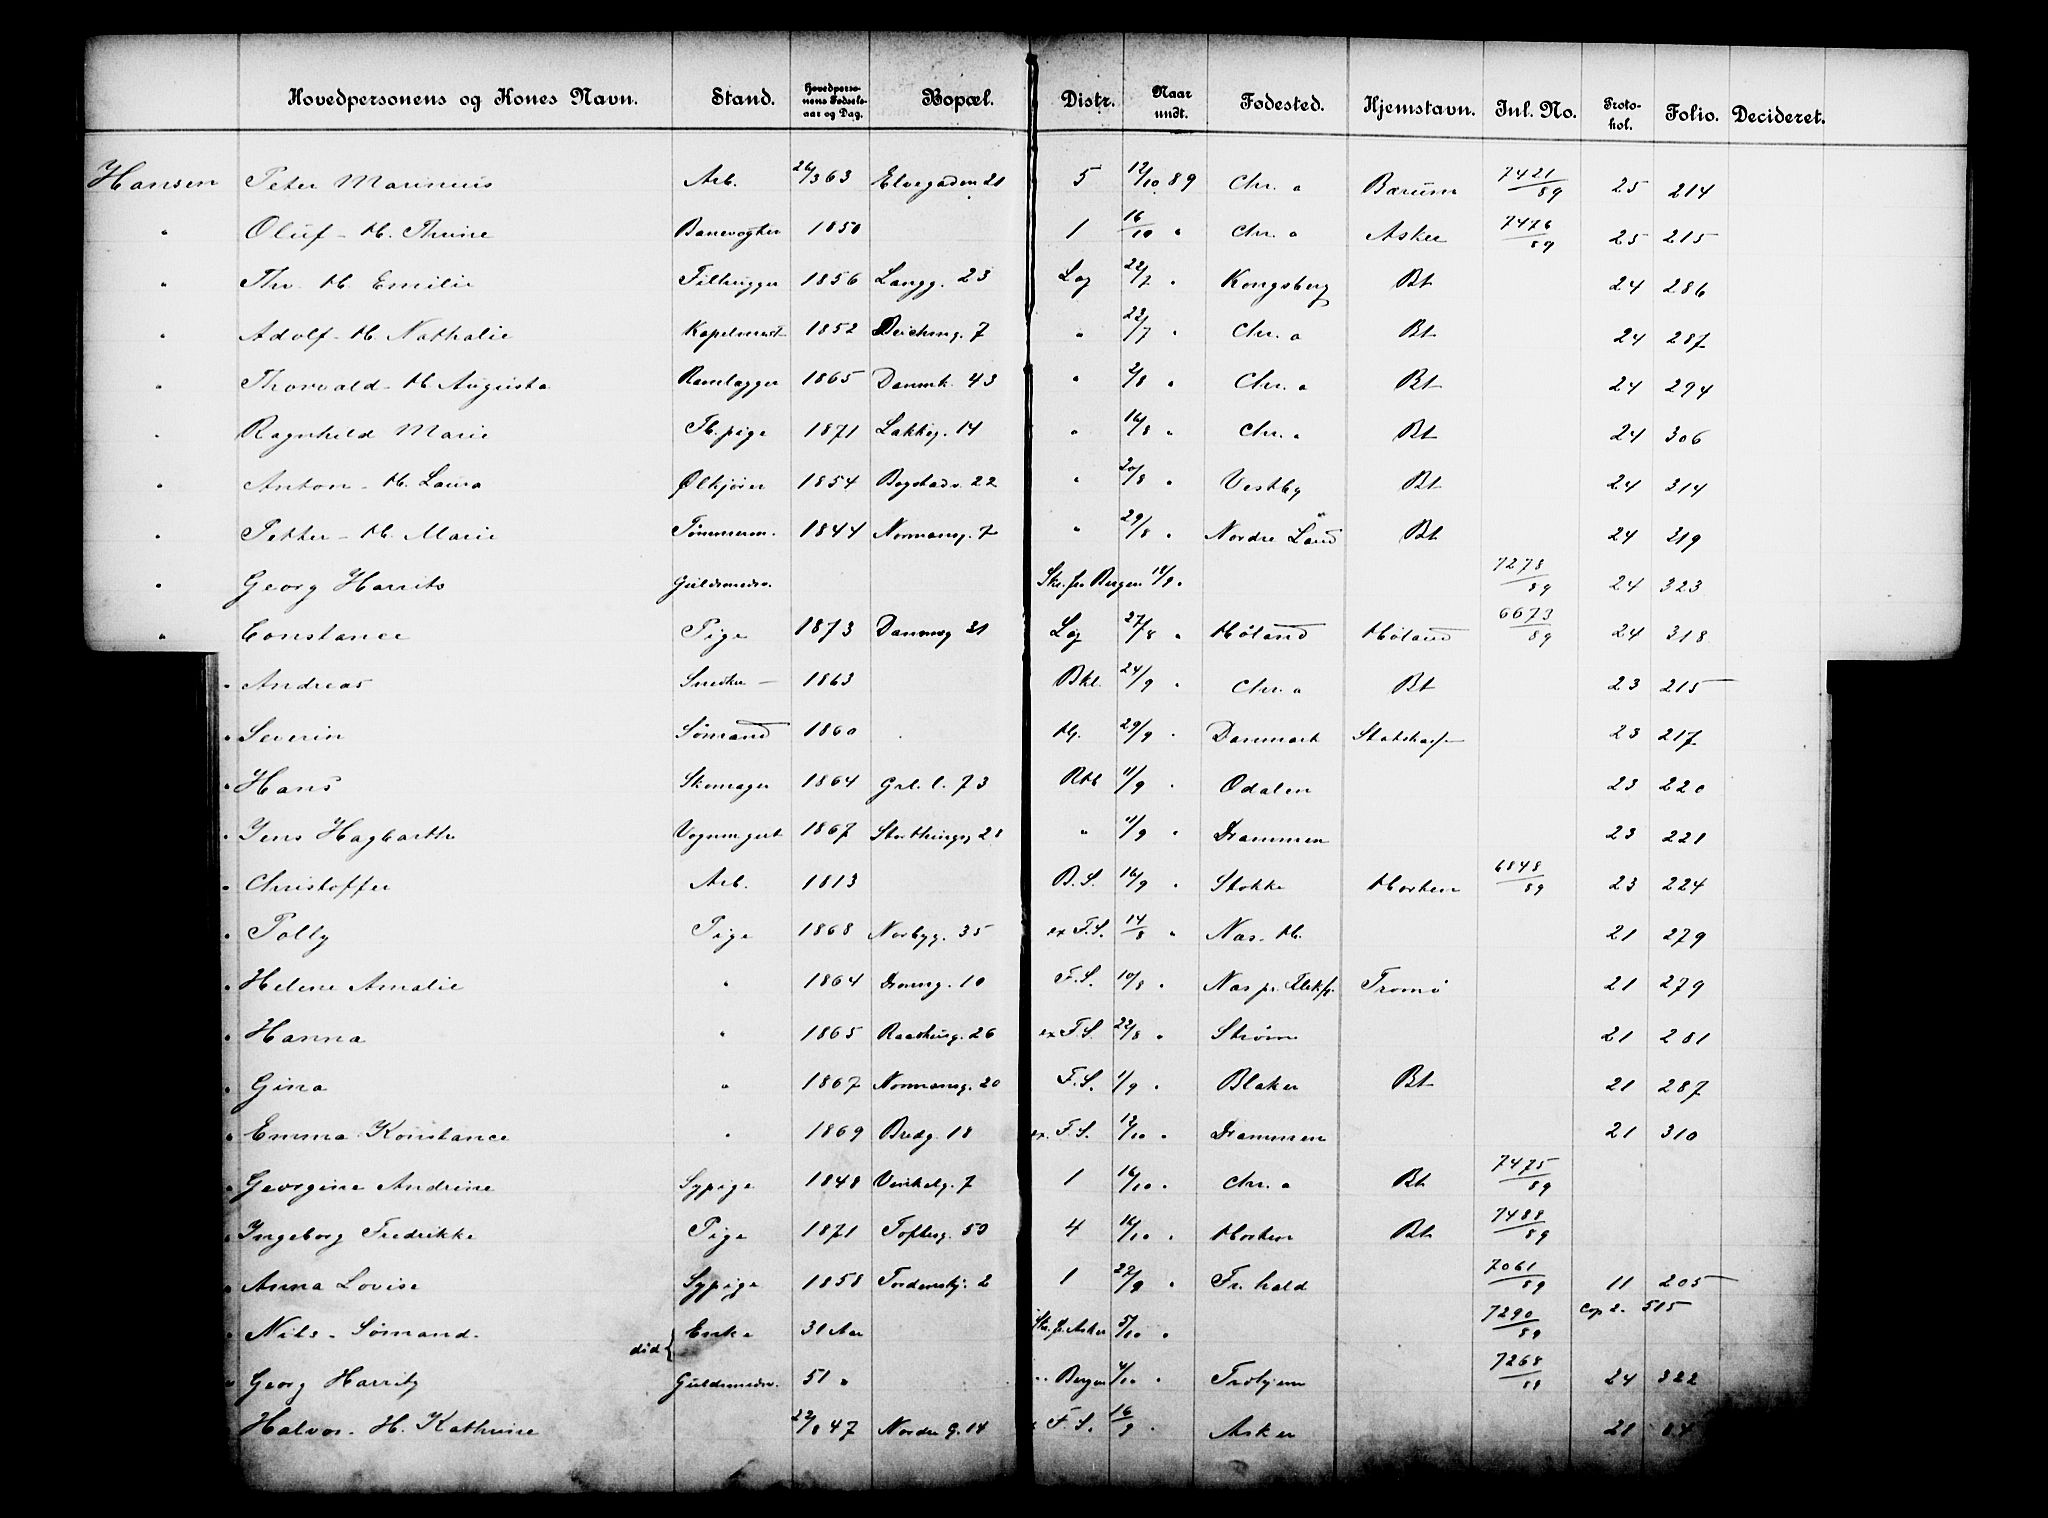 Hovedpersonens og Kones Navn. Stand. Hovedpersonens Fødselsaar og Dag. Bopæl. Distr. Naar undt. Fødested. Hjemstavn. Jul. No. Protokol. Folio. Decideret.
Hansen Peter Marinius Arb. 26/3 63 Elvegaden 21 5 12/10 89 Chr. a Bærum 7421/89 25 214
" Oluf - H. Thrine Banevogter 1850 1 16/10 " Chr. a Asker 7476/89 25 215
" Thv. H. Emilie 1856 Langg. 23 Lög 22/7 " Kongsberg Bt 24 286
" Adolf - H. Nathalie Kapelmest 1852 Deichmg. 7 " 22/7 " Chr. a Bt 24 287
" Thorvald - H Augusta Rørlægger 1865 Danmk. 43 " 2/8 " Chr. a Bt 24 294
" Ragnhild Marie Tb. pige 1871 Lakkeg. 14 " 16/8 " Chr. a Bt 24 306
" Anton - H. Laura Ølkjører 1854 Bogstadv. 22 " 20/8 " Vestby Bt 24 314
" Petter - H. Marie Tømmerm. 1844 Normansg. 7 " 29/8 " Nordre Land Bt 24 319
" Georg Harrits Guldsmedsv. Skr. fra Bergen 18/9 " 7278/89 24 323
" Constance Pige 1873 Danmsg 31 Lög 27/8 " Høland Høland 6673/89 24 318
" Andreas Snedker - 1863 Bkl. 24/9 " Chr. a Bt 23 215
" Severin Sømand 1860 Hj. 29/9 " Danmark 23 217
" Hans Skomager 1864 Grl. l. 73 Rkb 11/9 " Odalen 23 220
" Jens Hagbarth Vognmgut 1867 Storthingsg 28 " 11/9 " Drammen 23 221
" Christoffer Arb. 1813 B.S. 16/9 " Stokke Horten 6848/89 23 224
" Polly Pige 1868 Norbyg. 35 ex F.S. 14/8 " Nas. H. 21 279
" Helene Amalie " 1864 Dronng. 10 F.S. 10/8 " Nas pr. Flekkf. Tromö 21 279
" Hanna " 1865 Raadhusg. 26 ex F.S. 22/8 " Strøm 21 281
" Gina " 1867 Normansg. 20 F.S. 1/9 " Blaker Bt 21 287
" Emma Konstance " 1869 Bredg. 18 ex. F.S. 12/10 " Drammen 21 310
" Georgine Andrine Sypige 1848 Vinkelg. 7 1 16/10 " Chr. a Bt 7475/89
" Ingeborg Fredrikke Pige 1871 Toftesg. 50 4 16/10 " Horten Bt 7488/89
" Anna Lovise Sypige 1858 Tordenskj. 2 1 27/9 " Fr. hald 7061/89 11 205
" Nils - Sømand. Enke 31 Aar Skr. fr. Asker 5/10 " 7290/89 Cop 2. 515
did {
" Georg Harritz Guldsmedsv. 51 " " Bergen 4/10 " 7268/89 24 322
Halvor - H. Kathrine 22/8 47 Nordre G. 14 F.S. 16/9 " Asker 21